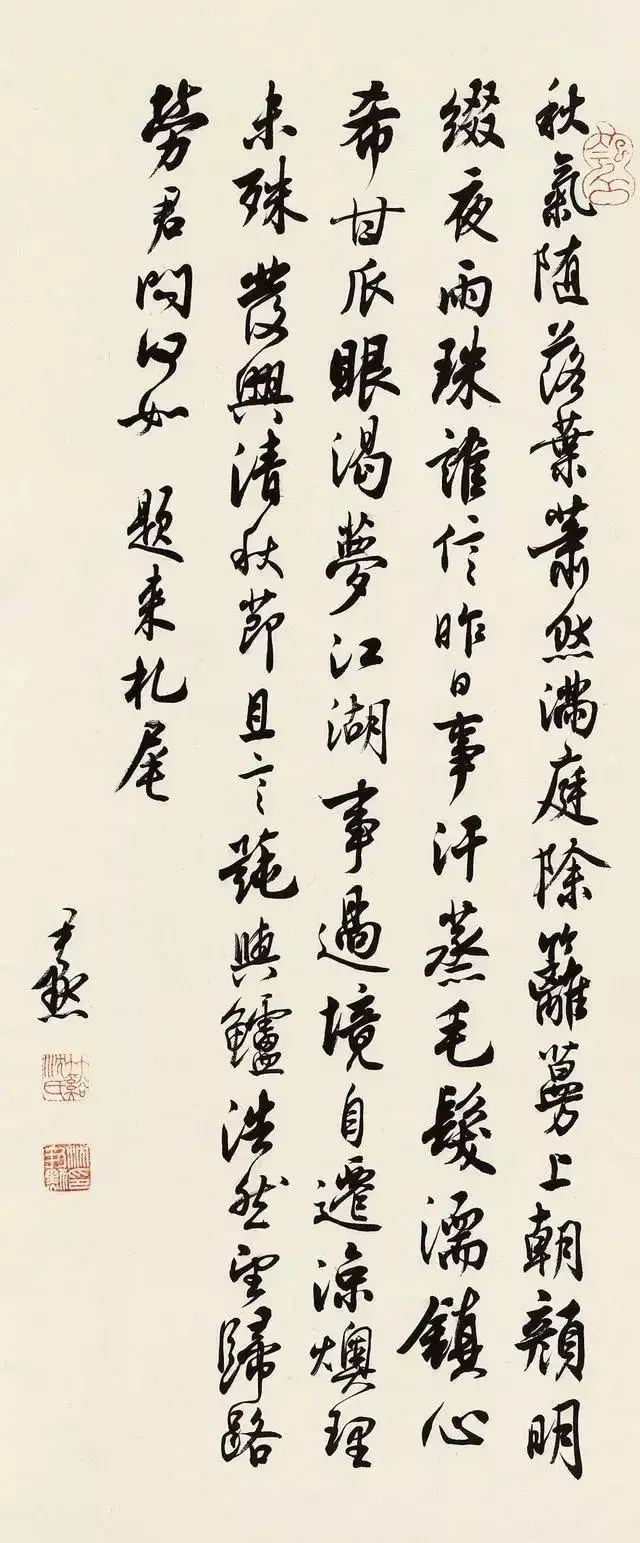 秋氣随落葉蕭然滿庭除籬蔓上朝顏明
綴夜雨珠誰信昨日事汗蒸毛髮濡鎮心
希甘瓜眼渴夢江湖事過境自遷涼燠理
未殊發興清秋節且言蒓與鱸浩然望歸路
勞君問何如 題来札尾
尹默
竹谿沈氏